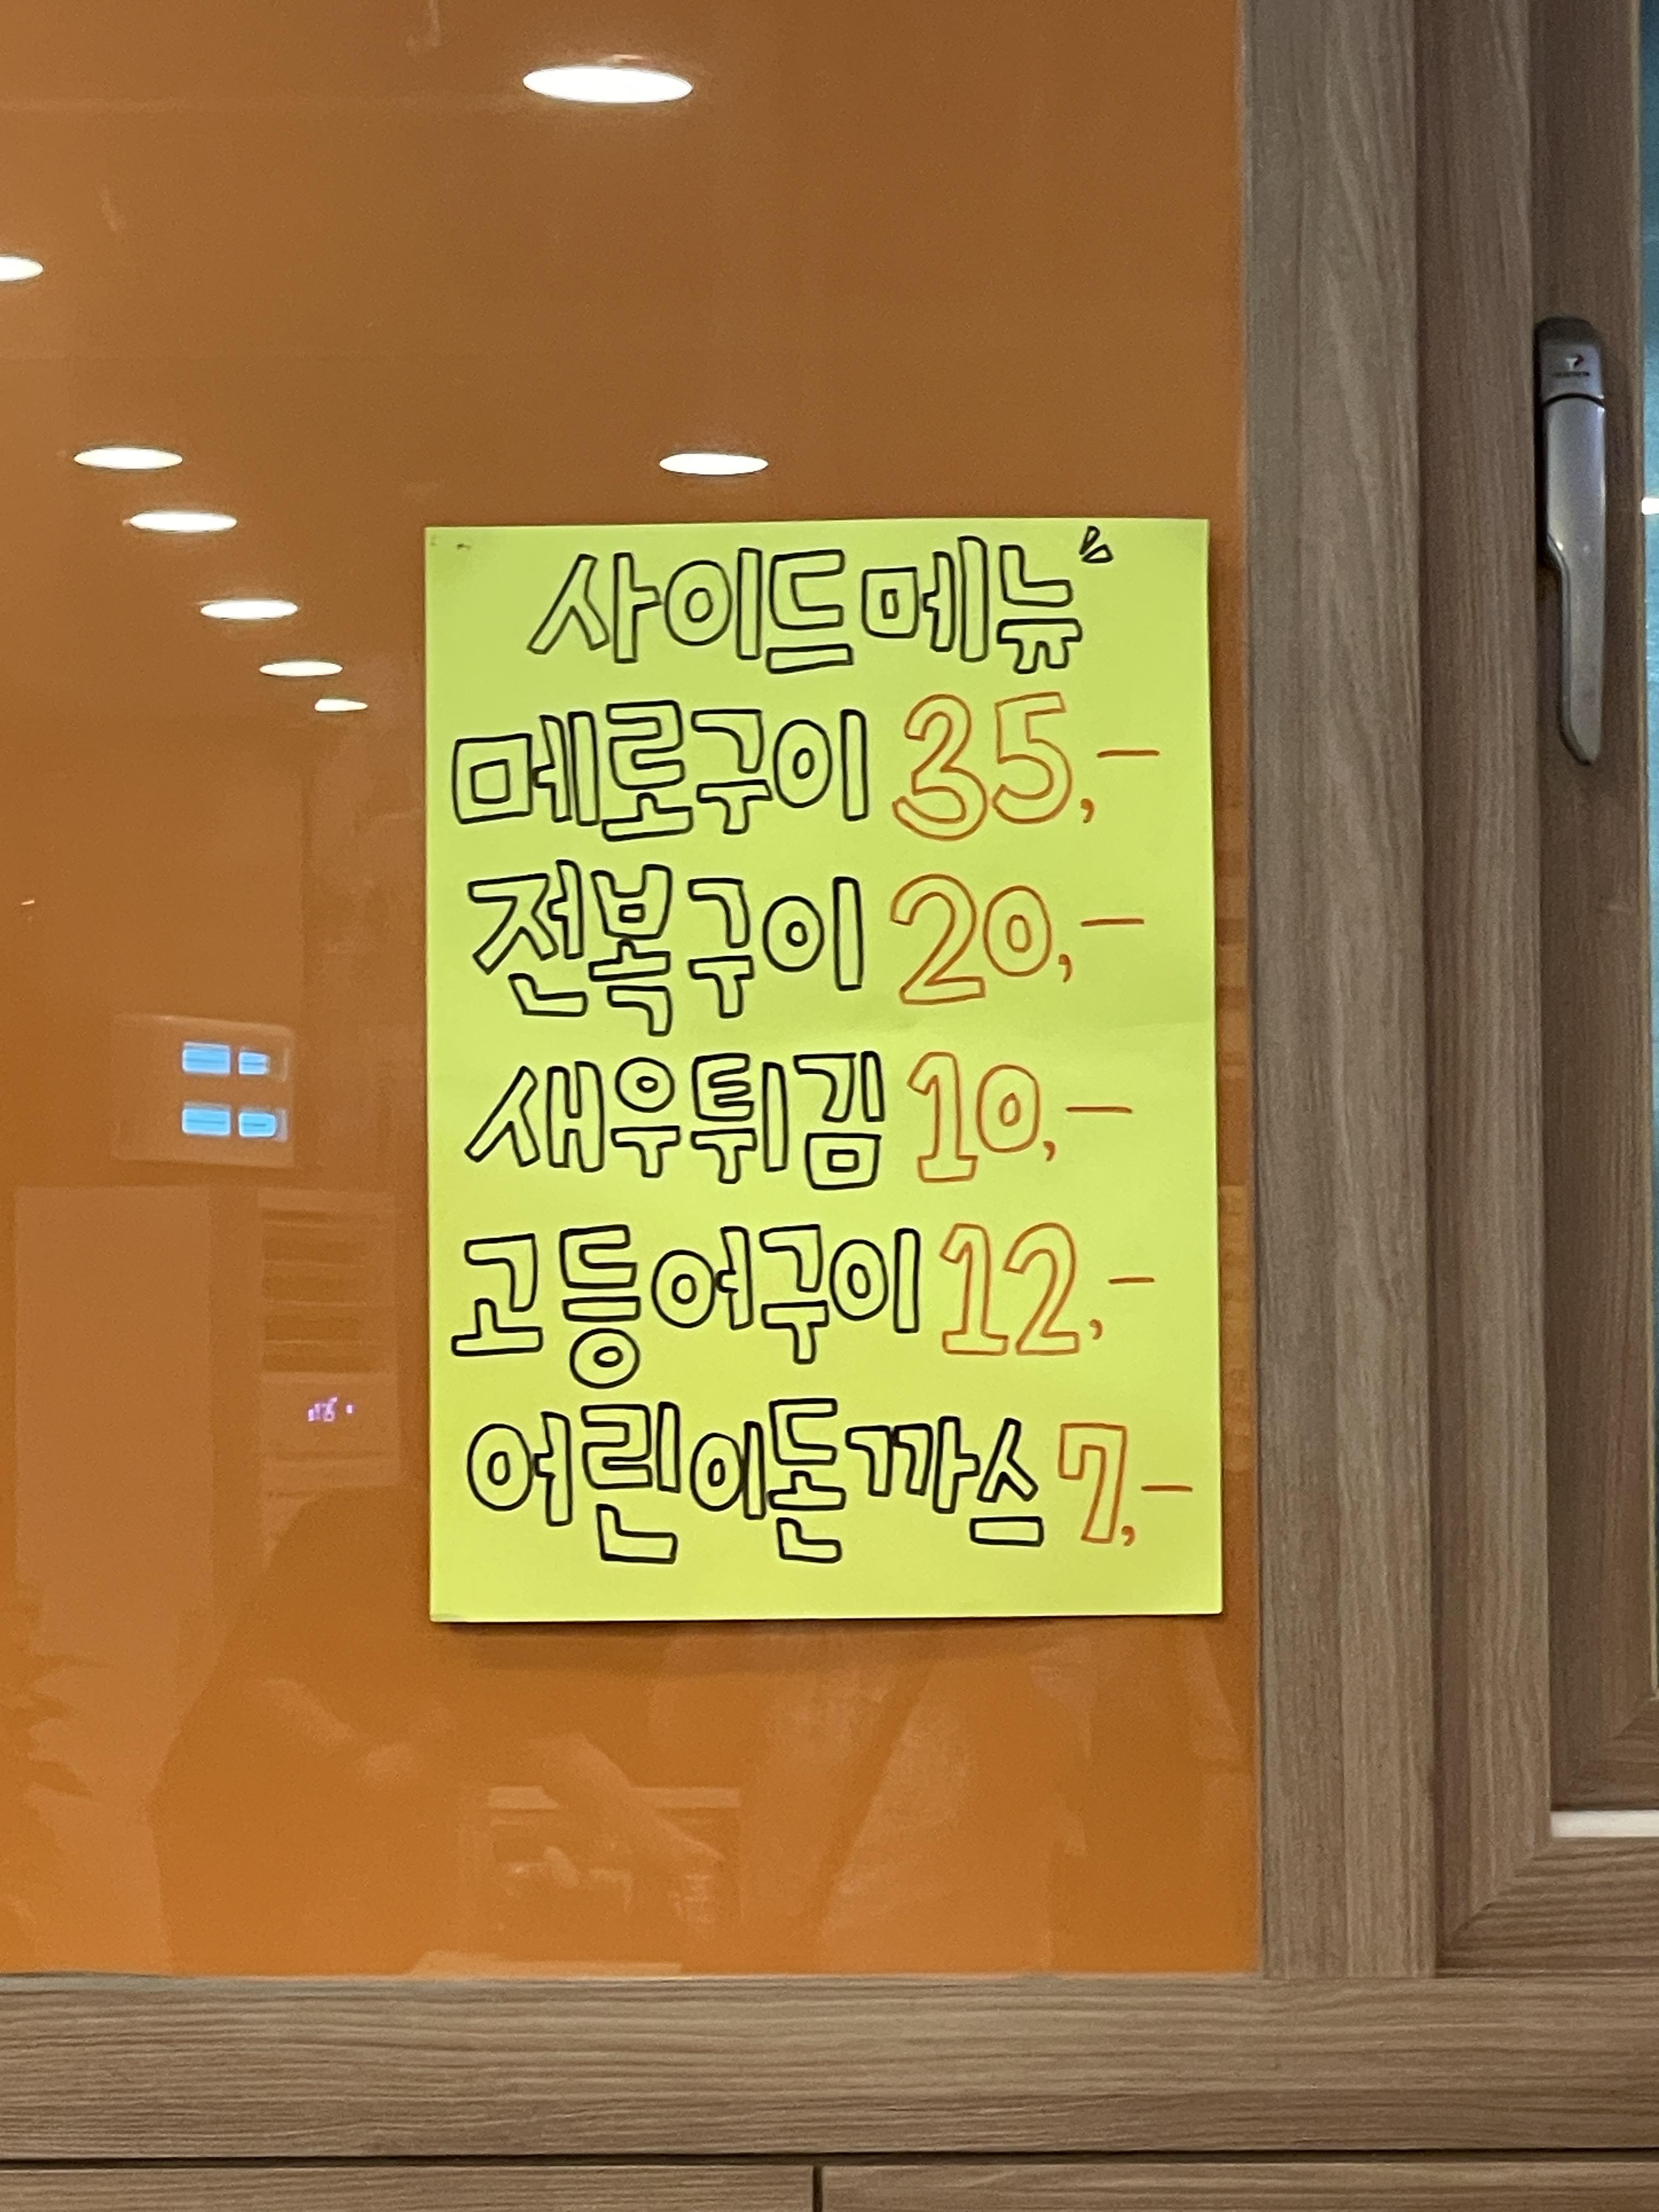 사이드메뉴
메로구이 35,-
전복구이 20,-
새우튀김 10,-
고등어구이 12,-
어린이돈까스 7,-